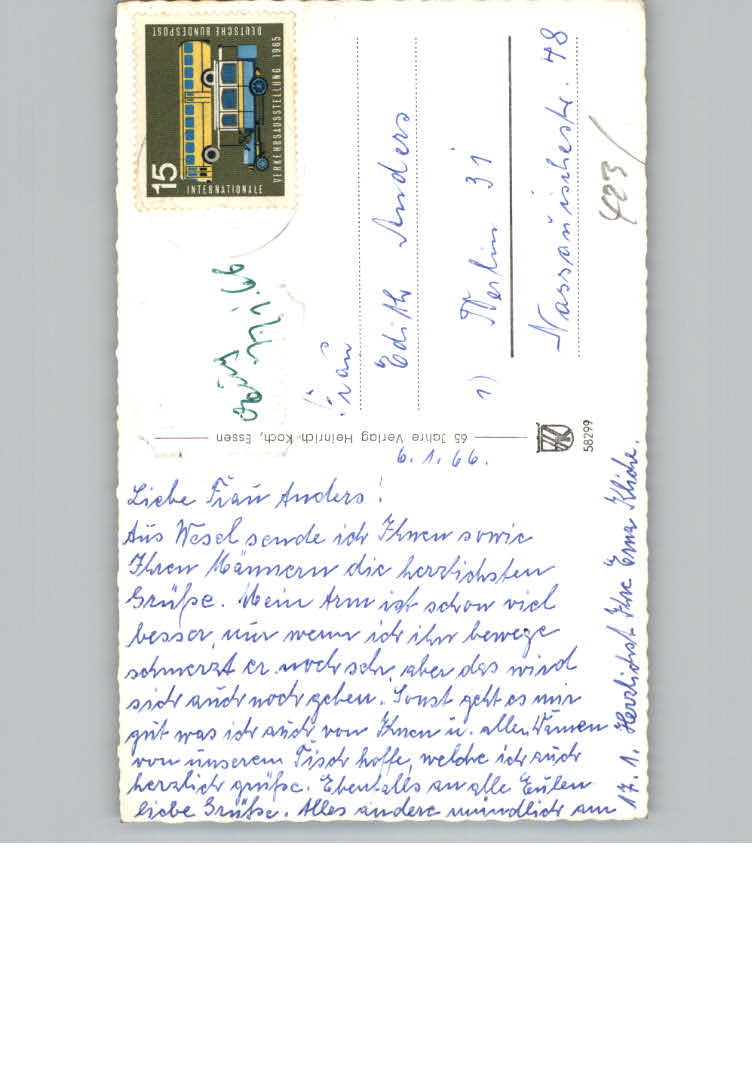 DEUTSCHE BUNDESPOST
15
INTERNATIONALE
VERKEHRSAUSSTELLUNG 1965
Frau
Edith Anders
1) Berlin 31
Nassauischestr. 48
423
65 Jahre Verlag Heinrich Koch, Essen
58299
6.1.66.
Liebe Frau Anders!
Aus Wesel sende ich Ihnen sowie
Ihren Männern die herzlichsten
Grüße. Mein Arm ist schon viel
besser, nur wenn ich ihn bewege
schmerzt er noch sehr, aber das wird
sich auch noch geben. Sonst geht es mir
gut was ich auch von Ihnen u. allen Damen
von unserem Tisch hoffe, welche ich auch
herzlich grüße. Ebenfalls an alle Eulen
liebe Grüße. Alles andere mündlich am
17.1. Herzlichst Ihre Erna Kliche.